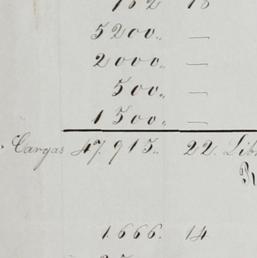 182 18
5200,, —
2000,, —
500,, —
1500,, —
Cargas 47.915.. 22. Lib
1.666. 14